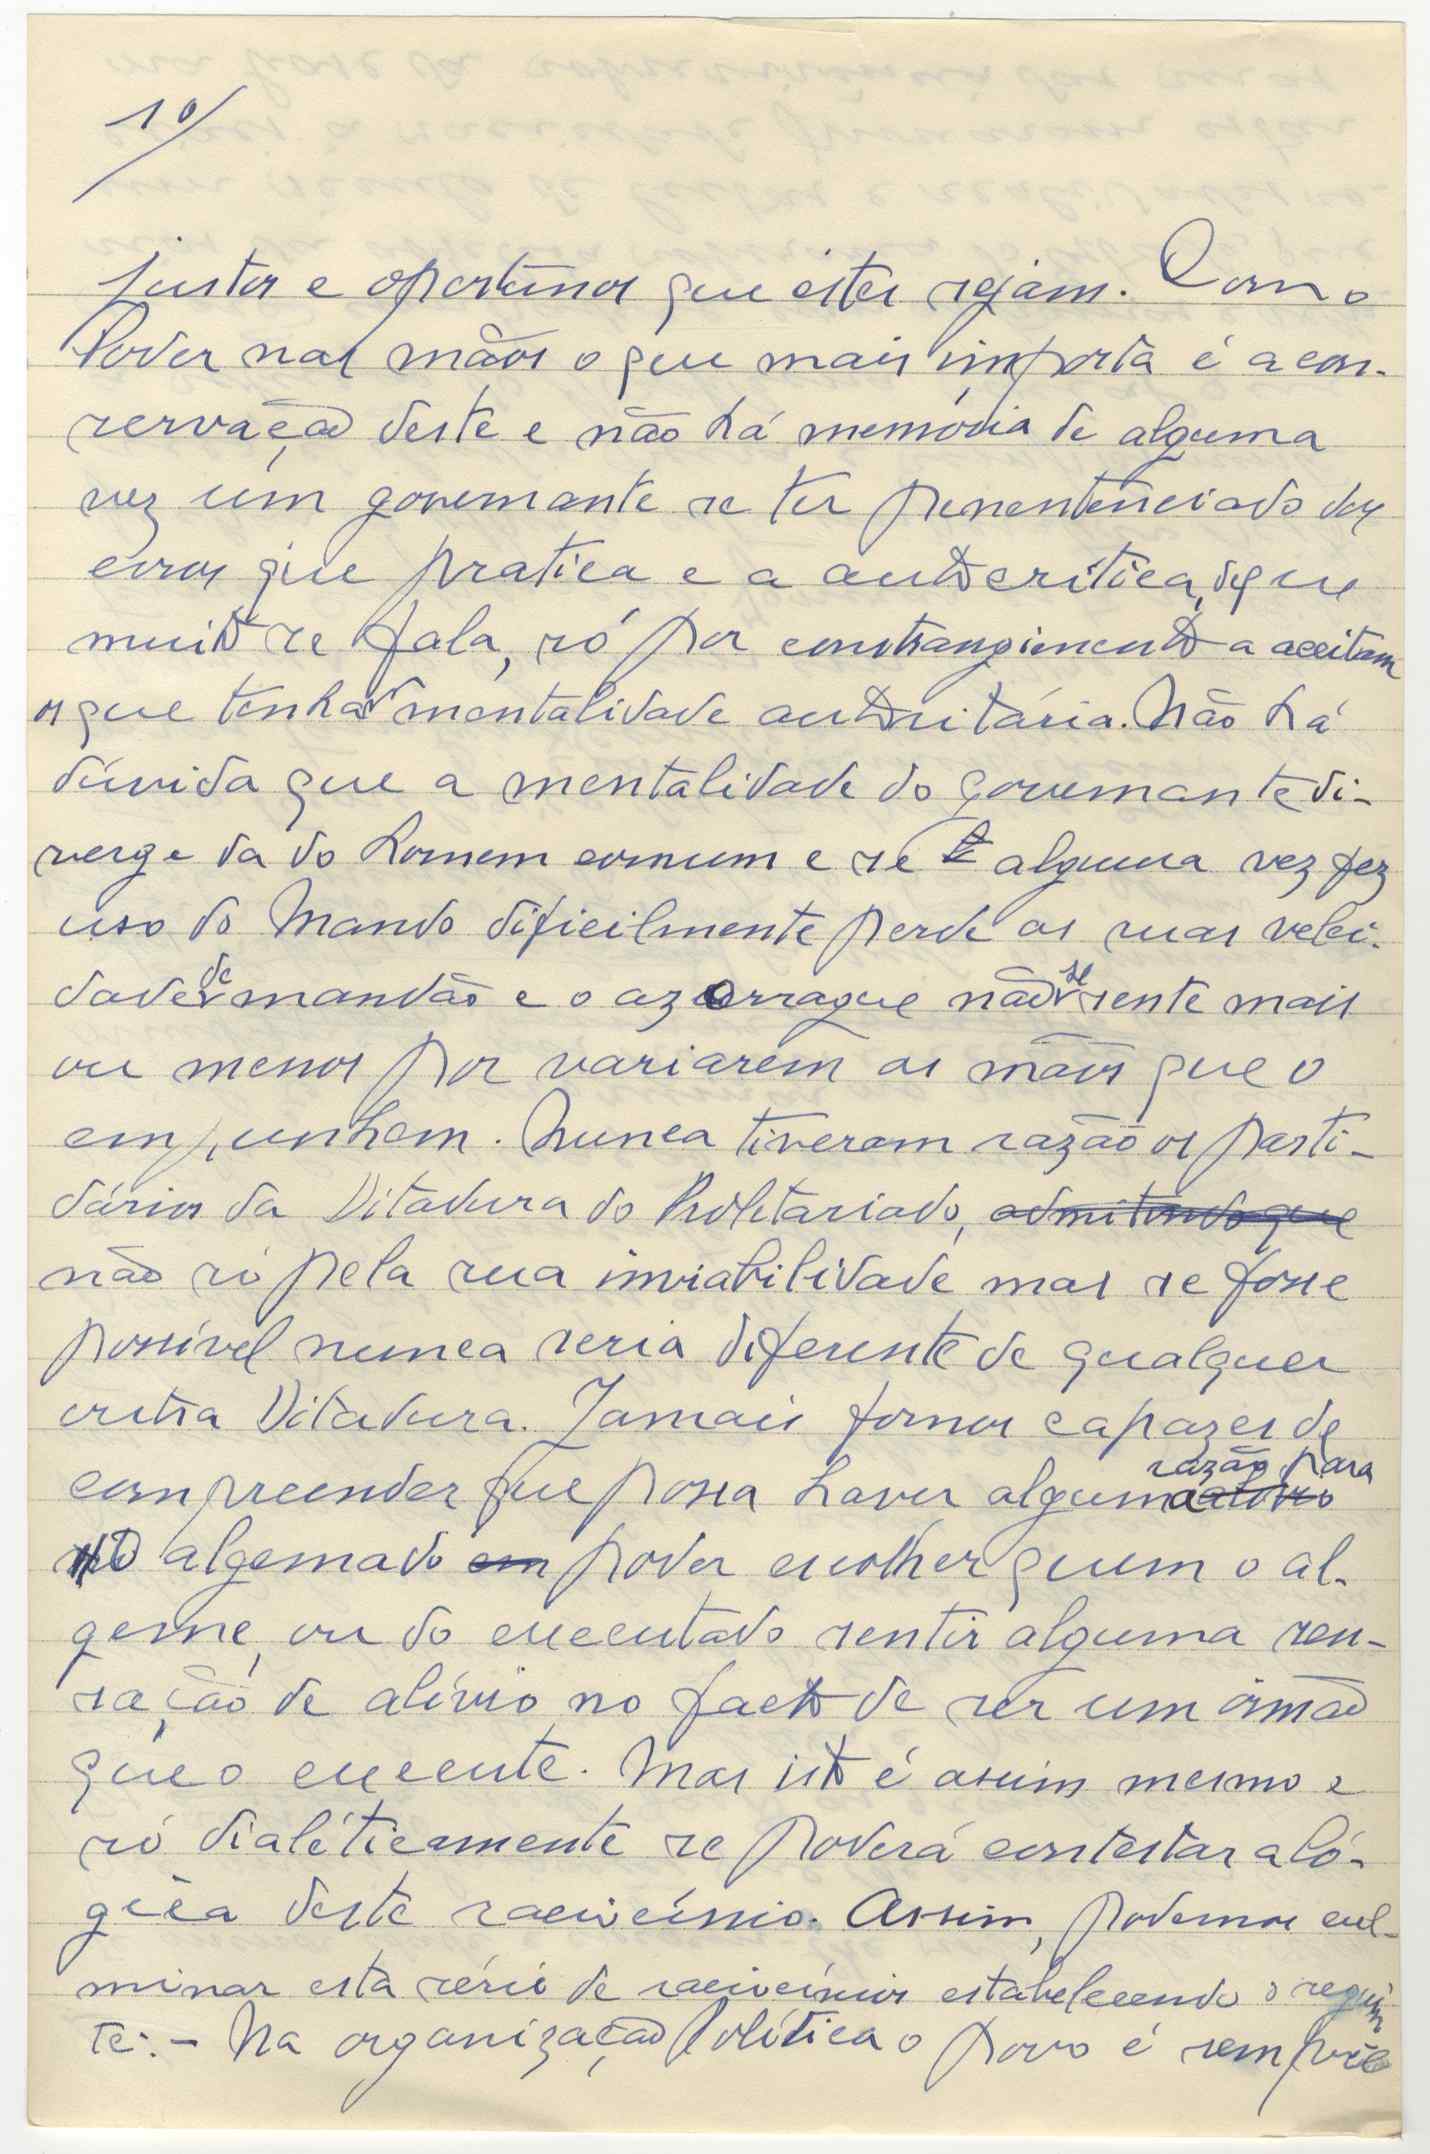 10/
justos e oportunos que estes sejam. Com o
Poder nas mãos o que mais importa é a con-
servação deste e não há memória de alguma
vez um governante se ter penentenciado dos
erros que pratica e a autocrítica, de que
muito se fala, só por constrangimento a aceitam
os que tenham mentalidade autoritária. Não há
dúvida que a mentalidade do governante di-
verge da do homem comum e se alguma vez fez
uso do Mando dificilmente perde as suas velei-
dades de mandão e o azorrague não se sente mais
ou menos por variarem as mãos que o
empunhem. Nunca tiveram razão os parti-
dários da Ditadura do Proletariado, admitindo que
não só pela sua inviabilidade mas se fosse
possível nunca seria diferente de qualquer
outra Ditadura. Jamais fomos capazes de
compreender que possa haver alguma razão para
o algemado em poder escolher quem o al-
geme, ou do executado sentir alguma sen-
sação de alívio no facto de ser um irmão
que o execute. Mas isto é assim mesmo e
só dialéticamente se poderá contestar a ló-
gica deste raciocínio. Assim, podemos cul-
minar esta série de raciocínios estabelecendo o seguin
te: - Na organização Política o povo é sempre